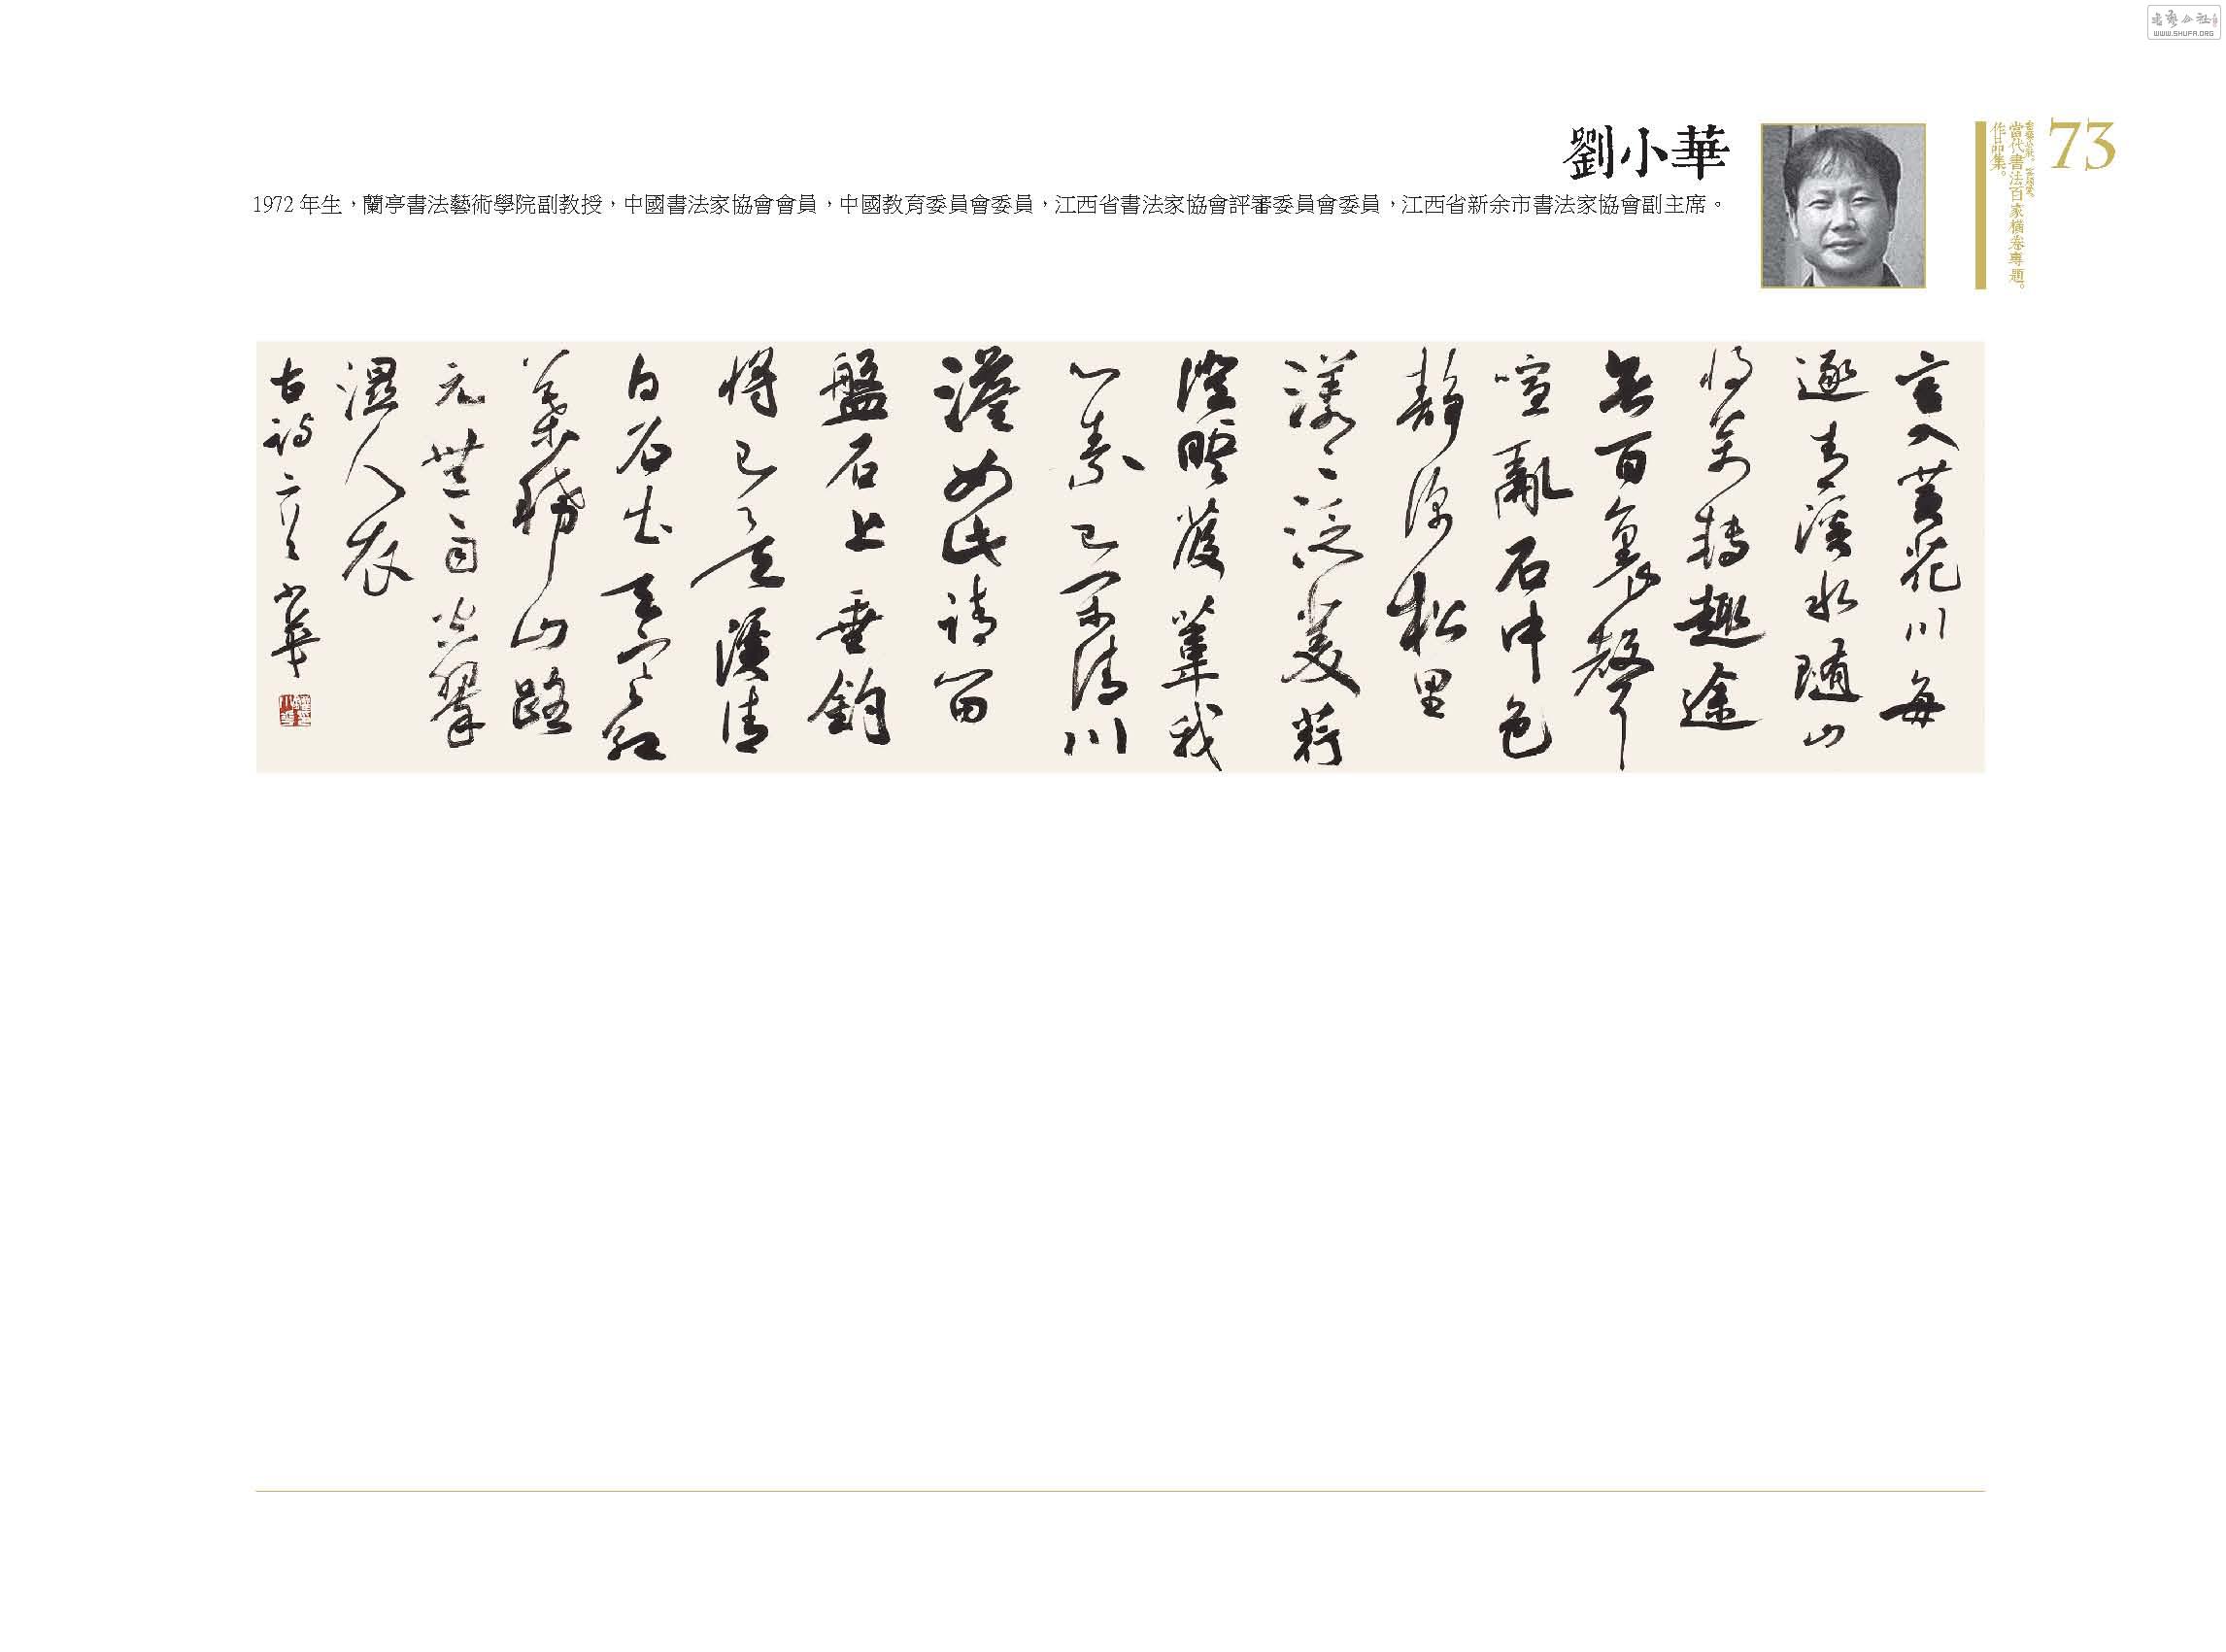 劉小華
1972年生，蘭亭書法藝術學院副教授，中國書法家協會會員，中國教育委員會委員，江西省書法家協會評審委員會委員，江西省新余市書法家協會副主席。
73
當代書法百家橫卷專題。
作品集。
言入黃花川每
逐青溪水隨山
將萬轉趣途
無百裏聲
喧亂石中色
靜深松里
漾〻泛菱荇
澄映葭葦我
心素已閑清川
澹如此請留
盤石上垂釣
將已矣溪清
白石出天寒紅
葉稀山路
元無雨空翠
濕人衣
古詩二首 小華
書藝公社
WWW.SHUFA.ORG